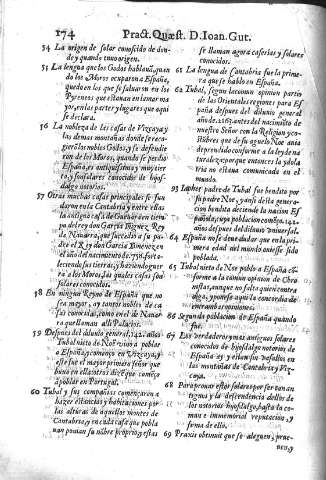 174 Pract. Quæst. D. Ioan. Gut.
54 La origen de solar conoscido de donde y quando tuuo origen.
55 La lengua que los Godos hablauan, quando los Moros ocuparon a España,
quedo en los que se saluaron en los
Pyreneos que llaman en lo mas
yor, en las partes y lugares que aqui
se declara.
56 La nobleza de las casas de Vizcaya y
las demas montañas donde se reco-
gieron los nobles Godos, y se defendie-
ron de los Moros, quando se perdio
España, es antiquissimo y muy cier-
to y son solares conocidos de hijos-
dalgo notorios.
57 Otras muchas casas principales se fun-
daron en la Cantabria y entre ellas
la antigua casa de Gueuara en tiem-
po del rey don Garcia Iñiguez Rey
de Nauarra, que sucedio a su pa-
dre el Rey don Garcia Ximenez en
el año del nacimiento de 758. forta-
lesciendo sus tierras, y haziendo guer-
ra a los Moros, las quales casas son
solares conocidos.
58 En ningun Reyno de España que no
sea mayor, ay tantos nobles de ca-
sas conocidas, como en el de Nauar-
ra que llaman alli Palacios.
59 Despues del diluuio general, 142. años
Tubal nieto de Noe vino a poblar
a España, y començo en Vizcaya, y
este fue el mayor primero señor que
huuo en ella, otros dizen que començo
a poblar en Portugal.
60 Tubal y sus compañas començaron a
hazer estancias y habitaciones por
las alturas de aquellos montes de
Cantabria, y en cada casa que pobla
uan ponian su nõbre proprio, y estas
se llaman agora caserios y solares
conocidos.
61 La lengua de Cantabria fue la prime-
ra que se hablo en España.
62 Tubal, segun la comun opinion partio
de las Orientales regiones para Es-
paña despues del diluuio general
año de 2163. antes del nacimiento de
nuestro Señor con la Religion y co-
stũbres que de su aguelo Noe auia
deprendido conforme a la ley de na
turaleza: porque entonces la ydola
tria no estaua comunicada en el
mundo.
63 padre de Tubal fue bendito por
su padre Noe, y ansi de esta genera-
cion bendita deciende la nacion Es
pañola, cuya poblacion comẽço. 142.
años despues del diluuio vniuersal.
64 España no se deue dudar que en la pri-
mera edad del mundo antes fue
poblada.
65 Tubal nieto de Noe poblo a España cõ
forme a la comun opinion de Chro-
nistas, aunque no falta quien contra-
diga, y ponese aqui la concordia de
contrarios.
66 Segunda poblacion de España quando
fue.
67 Los verdaderos y mas antiguos solares
conocidos de hijosdalgo notorios de
España es y estan sus assientos en
las montañas de Cantabria y Viz-
caya.
68 Para prouar estos solares por ser tan an
tiguos y la descendencia dellos de
los notorios hijosdalgo, basta la co-
mun e immemorial reputacion, y
forma de ello.
69 Praxis obtinuit que se aleguen, prue-
uen, y